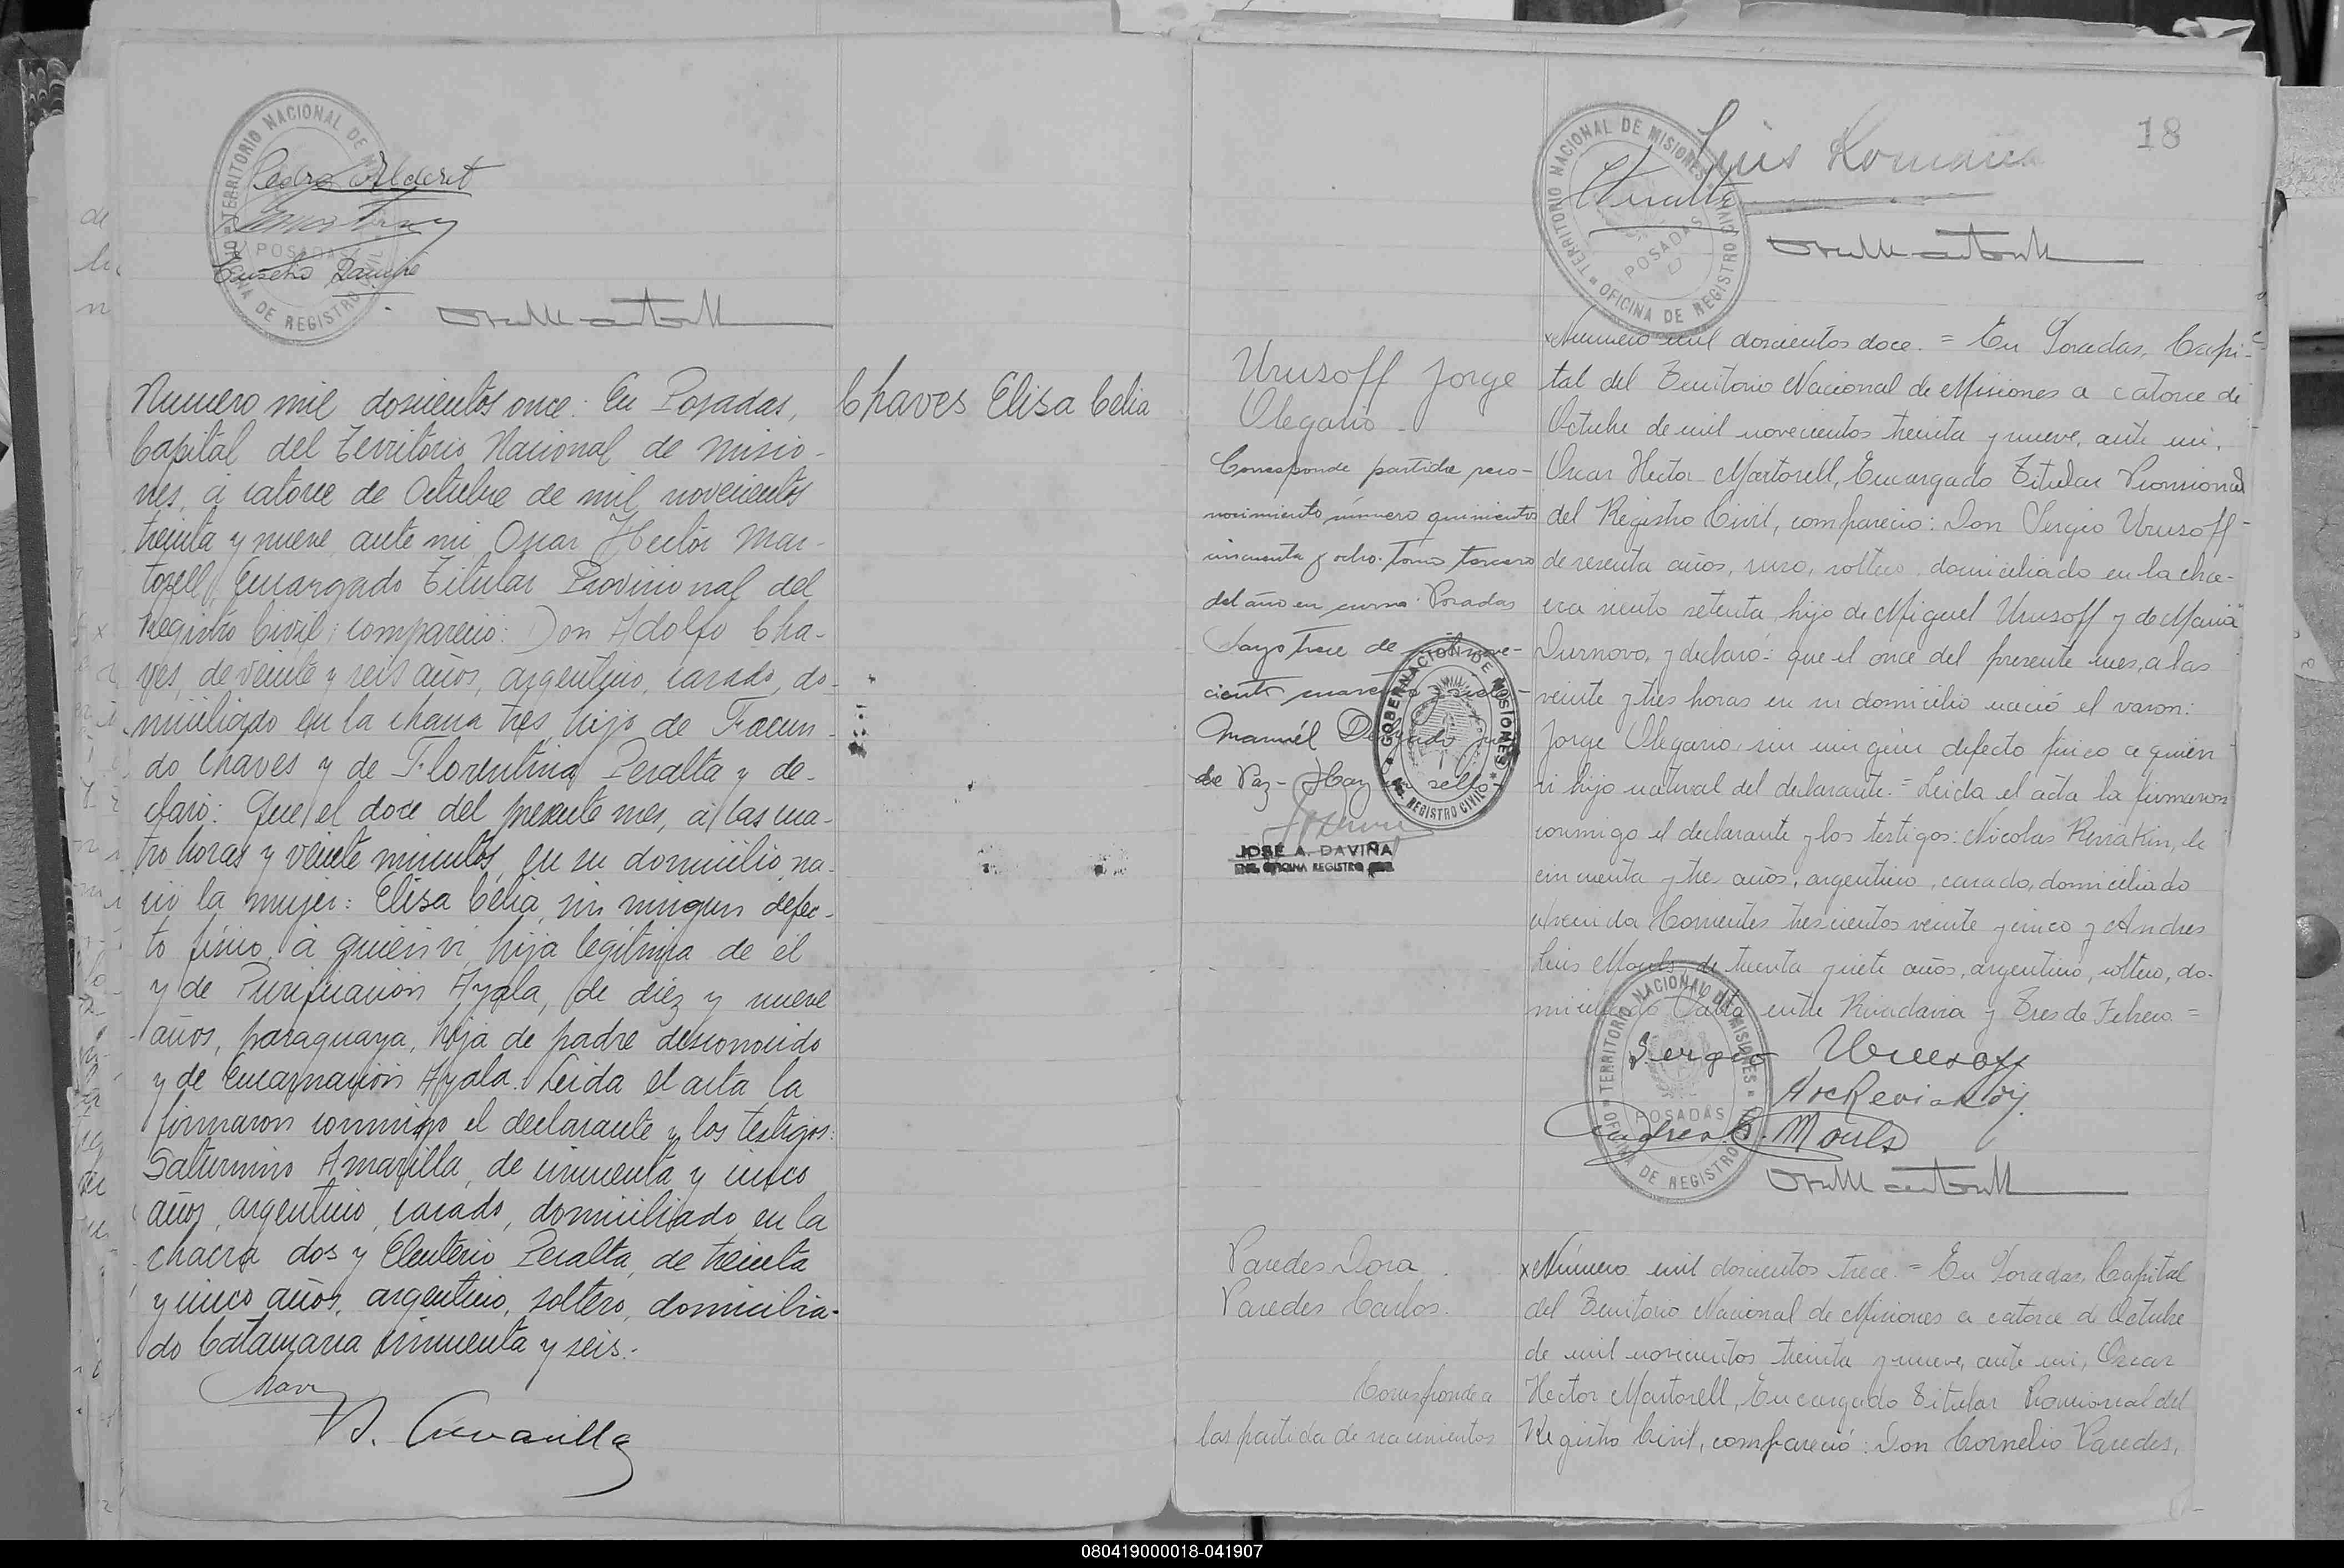 TERRITORIO NACIONAL DE MISIONES
OFICINA DE REGISTRO CIVIL
POSADAS
Pedro Alderet
Eusebio Ramirez
Numero mil doscientos once: En Posadas,
Capital del Territorio Nacional de Misio-
nes, á catorce de Octubre de mil novecientos
treinta y nueve, ante mi Oscar Hector Mar-
torell, Encargado Titular Provisional del
Registro Civil; compareció: Don Adolfo Cha-
ves, de veinte y seis años, argentino, casado, do-
miciliado en la chacra tres, hijo de Facun-
do Chaves y de Florentina Peralta y de-
claró: Que el doce del presente mes, á las cua-
tro horas y veinte minutos, en su domicilio, na-
ció la mujer: Elisa Celia, sin ningun defec-
to físico, á quien vi, hija legítima de él
y de Purificación Ayala, de diéz y nueve
años, paraguaya, hija de padre desconocido
y de Encarnación Ayala. Leida el acta la
firmaron conmigo el declarante y los testigos:
Saturnino Amarilla, de cincuenta y cinco
años, argentino, casado, domiciliado en la
chacra dos y Eleuterio Peralta, de treinta
y cinco años, argentino, soltero, domicilia-
do Catamarca cincuenta y seis.-
Chaves Elisa Celia
18
Luis Romana
TERRITORIO NACIONAL DE MISIONES
OFICINA DE REGISTRO CIVIL
POSADAS
Urusoff Jorge
Olegario -
Corresponde partida reco-
nocimiento número quinientos
cincuenta y ocho. Tomo tercero
del año en curso. Posadas
Mayo trece de mil nove-
cientos cuarenta y siete-
Manuél Delgado Juez
de Paz- Hay un sello
GOBERNACION DE MISIONES
REGISTRO CIVIL
JOSÉ A. DAVIÑA
ENC. OFICINA REGISTRO CIVIL
xNúmero mil doscientos doce. = En Posadas, Capi-
tal del Territorio Nacional de Misiones a catorce de
Octubre de mil novecientos treinta y nueve, ante mi,
Oscar Hector Martorell, Encargado Titular Provisional
del Registro Civil, compareció: Don Sergio Urusoff-
de sesenta años, ruso, soltero, domiciliado en la cha-
cra ciento setenta, hijo de Miguel Urusoff y de Maria
Durnovo, y declaró: que el once del presente mes, a las
veinte y tres horas en su domicilio nació el varon:
Jorge Olegario, sin ningún defecto físico a quien
vi hijo natural del declarante. = Leida el acta la firmaron
conmigo el declarante y los testigos: Nicolas Reviakin, de
cincuenta y tres años, argentino, casado, domiciliado
Avenida Corrientes trescientos veinte y cinco y Andres
Luis Mouls, de treinta y siete años, argentino, soltero, do-
miciliado Salta entre Rivadavia y Tres de Febrero =
TERRITORIO NACIONAL DE MISIONES
OFICINA DE REGISTRO CIVIL
POSADAS
Sergio Urusoff
Andres L. Mouls
Paredes Dora
Paredes Carlos.
Corresponde a
las partida de nacimientos
xNúmero mil doscientos trece. = En Posadas, Capital
del Territorio Nacional de Misiones a catorce de Octubre
de mil novecientos treinta y nueve, ante mi, Oscar
Hector Martorell, Encargado Titular Provisional del
Registro Civil, compareció: Don Cornelio Paredes,
080419000018-041907